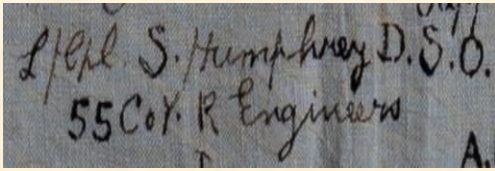 L/Cpl. S. Humphrey D.S.O.
55 Coy. R Engineers
A.